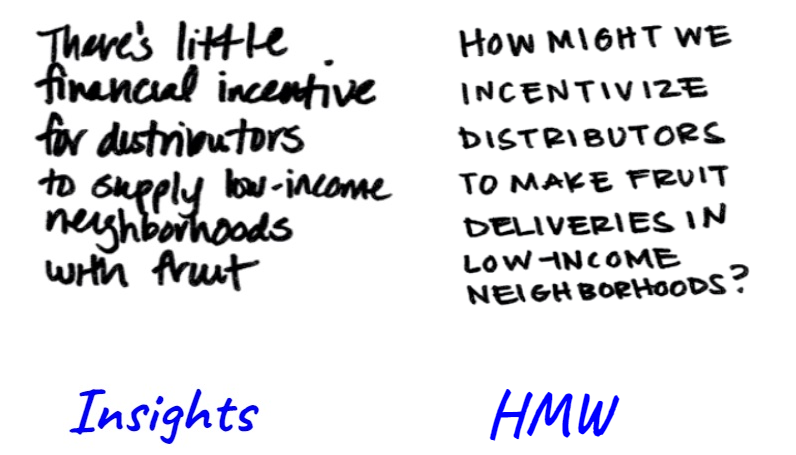 There's little
financial incentive
for distributors
to supply low-income
neighborhoods
with fruit
HOW MIGHT WE
INCENTIVIZE
DISTRIBUTORS
TO MAKE FRUIT
DELIVERIES IN
LOW-INCOME
NEIGHBORHOODS?
Insights
HMW